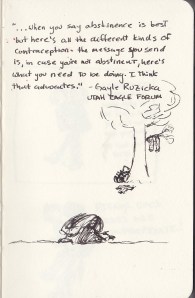 "...When you say abstinence is best
but here's all the different kinds of
contraception - the message you send
is, in case you're not abstinent, here's
what you need to be doing. I think
that advocates." - Gayle Ruzicka
UTAH EAGLE FORUM